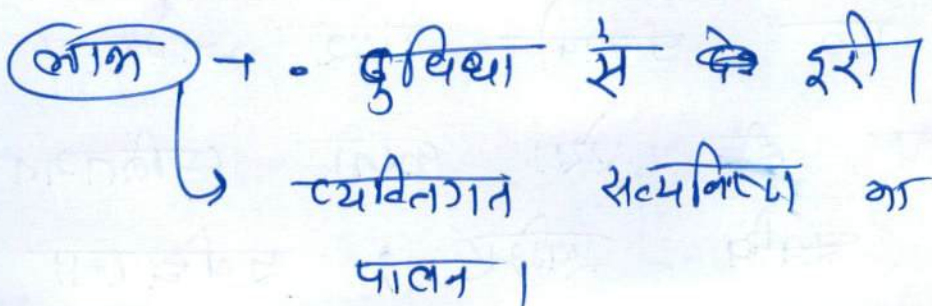 लाभ → • दुविधा से दूरी।
व्यक्तिगत सत्यनिष्ठा का
पालन।